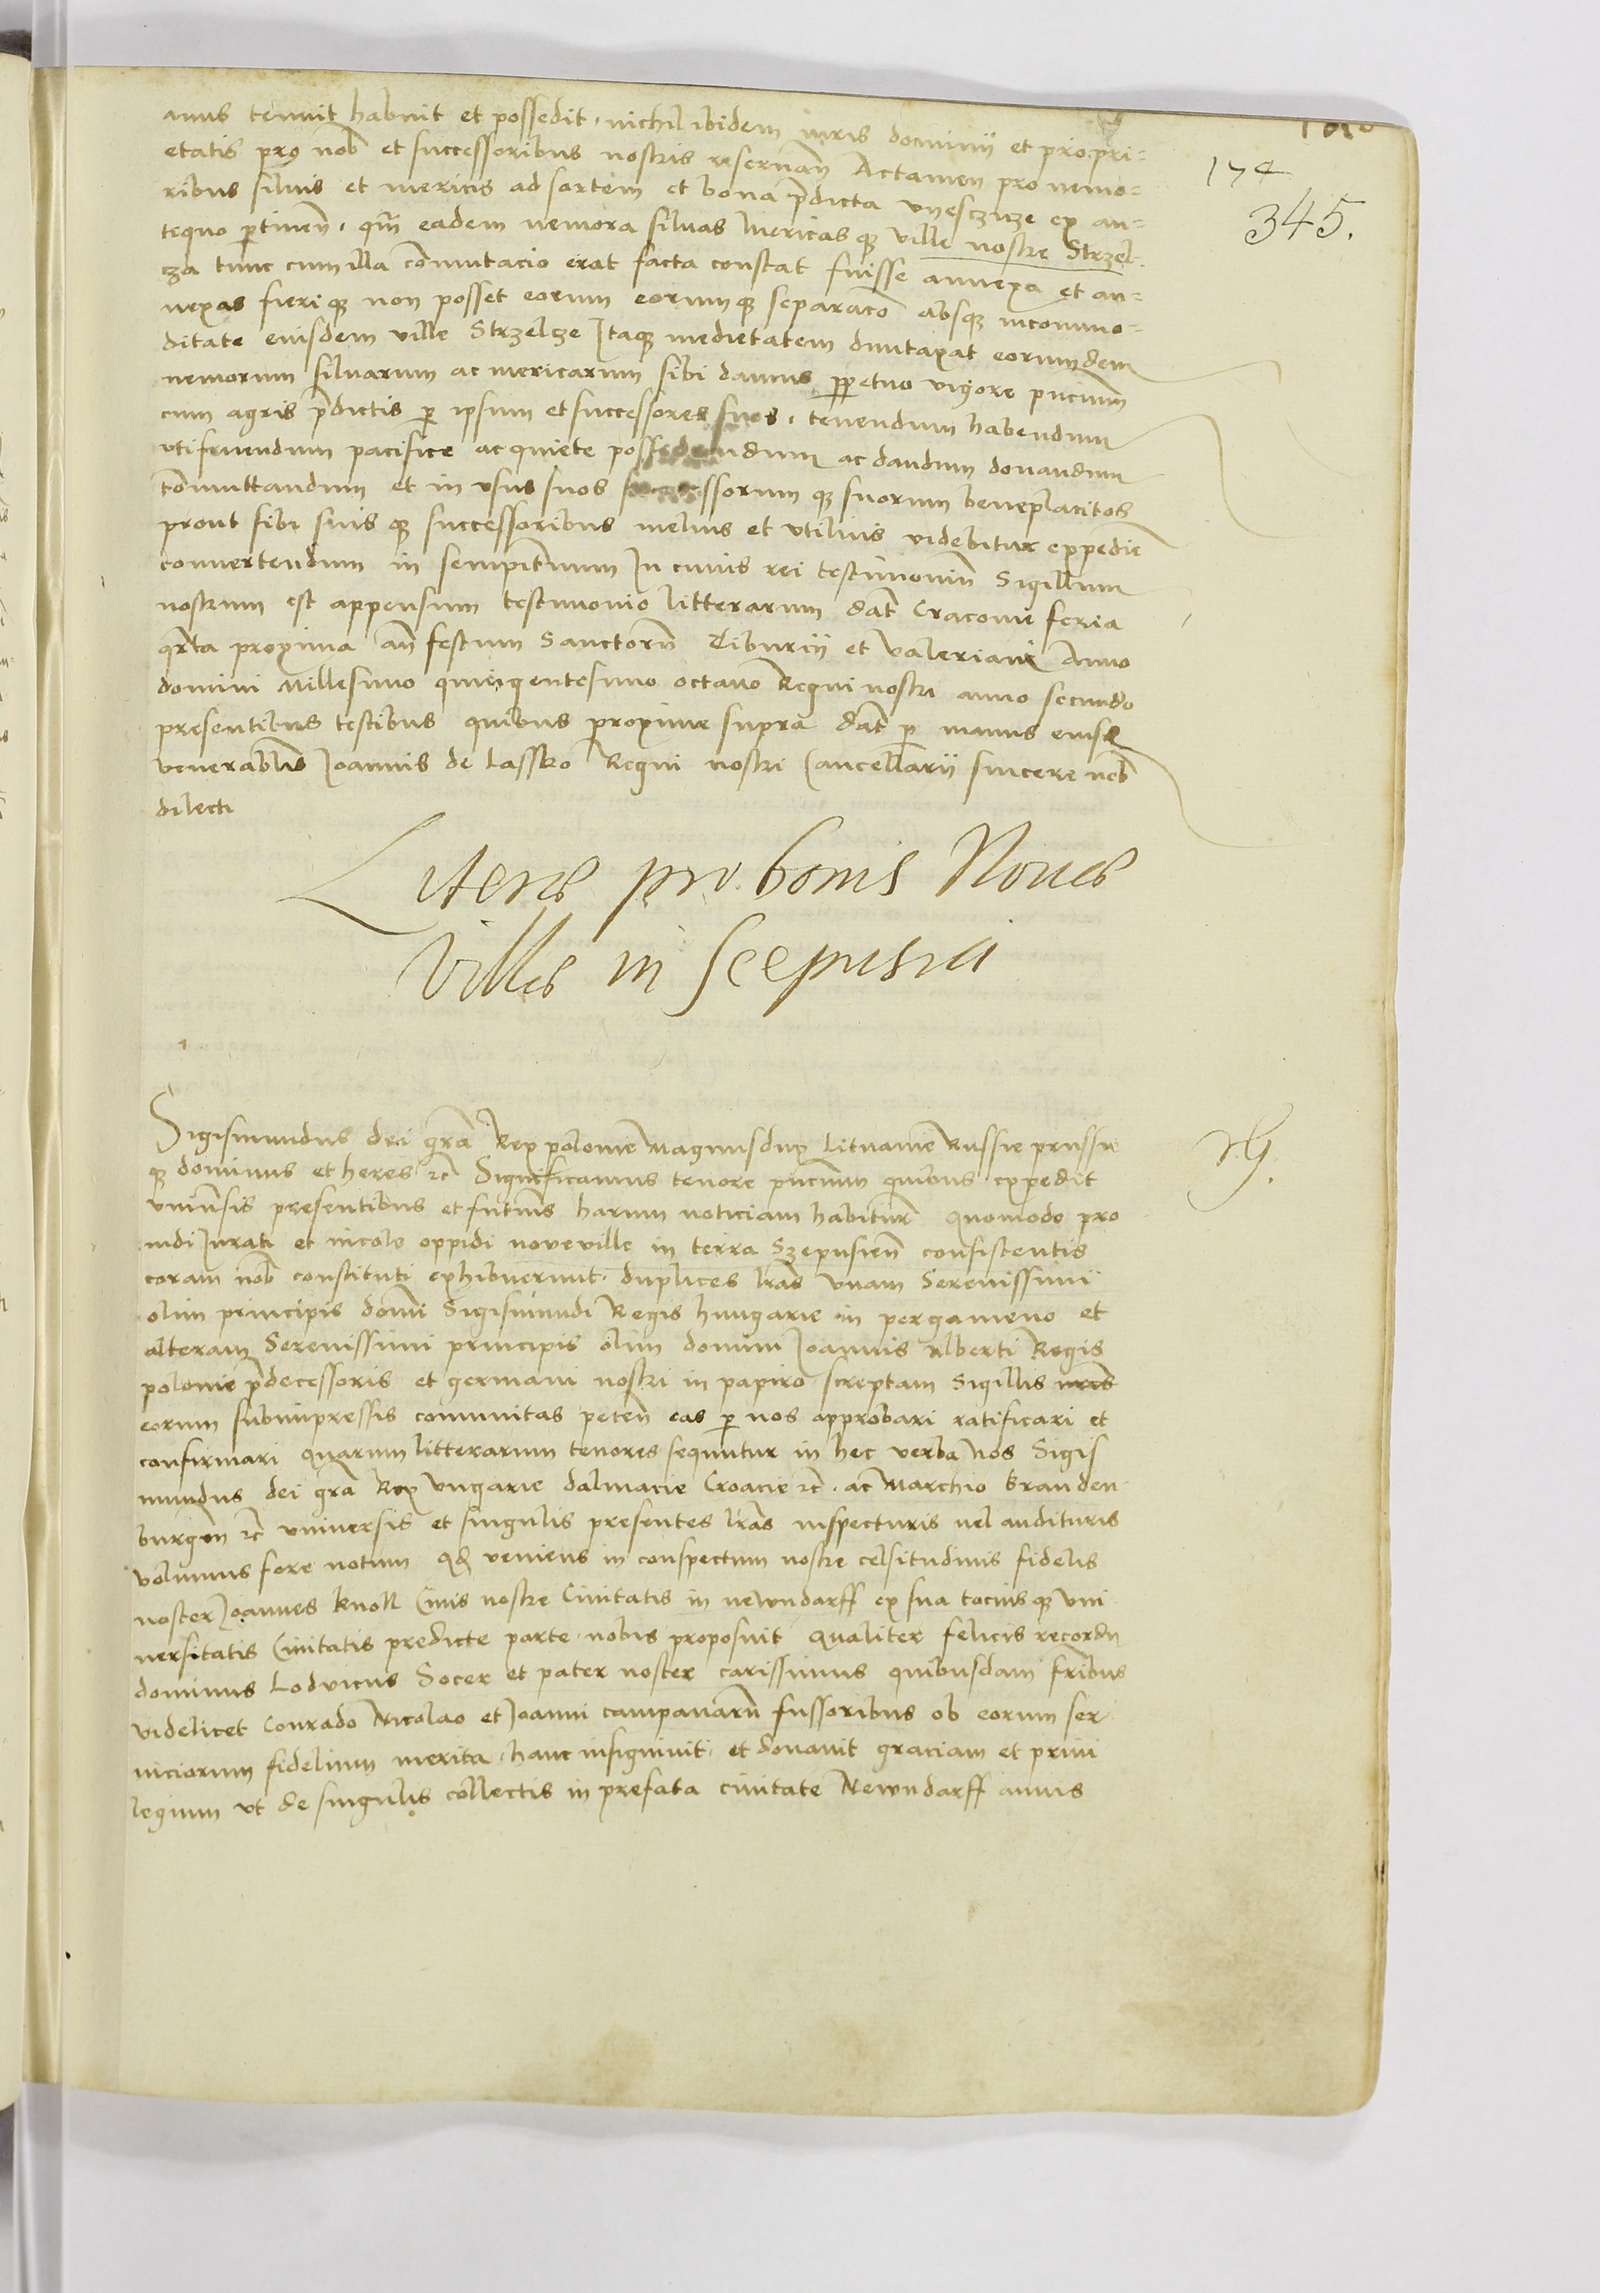 174
345.
anus tenuit habuit et possedit, nichil ibidem iuris dominij et propri=
etatis pro nob et successoribus nostris reseruan̄ Actamen pro nemo=
ribus siluis et mericis ad sortem et bona p̄dicta ex an=
tequo ꝑtinen̄, qm̄ eadem nemora siluas mericasqꝫ ville nostre Strzel
cza tunc cum illa cōmutacio erat facta constat fuisse annexa et an=
nexas fieriqꝫ non posset eorum eorumqꝫ separacō absqꝫ incommo=
ditate eiusdem ville Strzelcze Itaqꝫ medietatem duntaxat eorumdem
nemorum siluarum ac mericarum sibi damus ꝑpetuo vigore pn̄cium
cum agris p̄dictis ꝑ ipsum et successores suos, tenendum habendum
vtifruendum pacifice ac quiete possidendum ac dandum donandum
cōmuttandum et in vsus suos successorumqꝫ suorum beneplacitos
prout sibi suisqꝫ successoribus melius et vtilius videbitur expedir̄
conuertendum in sempit̄num In cuius rei testimoniū Sigillum
nostrum est appensum testimonio litterarum dat̄ Cracouie feria
qr̄ta proxima an̄ festum Sanctorū Tiburcij et Valeriani Anno
domini Millesimo quingentesimo octauo Regni nostri anno secundo
presentibus testibus quibus proxime supra dat̄ ꝑ manus eiusdē
venerabilis Joannis de Lassko Regni nostri Cancellarij sincere nob̄
dilecti
Litere pro bonis Noue
Ville in Scepusia
Sigismundus dei gr̄a Rex polonie Magnusdux Lituanie Russie prussie
qꝫ dominus et heres ꝛc̄ Significamus tenore pn̄cium quibus expedit
vniūsis presentibus et futuris harum noticiam habitur̄ Quomodo pro
uidi Jurati et incole oppidi noueville in terra Szepusien̄ consistentis
coram nob̄ constituti exhibuerunt duplices lr̄as vnam Serenissimi
olim principis domī Sigismundi Regis hungarie in pergameno et
alteram Serenissimi principis olim domini Joannis Alberti Regis
polonie p̄decessoris et germani nostri in papiro screptam Sigillis
eorum subimpressis comunitas peten̄ eas ꝑ nos approbari ratificari et
confirmari Quarum litterarum tenores sequntur in hec verba Nos Sigis
mundus dei gr̄a Rex Vngarie dalmacie Croacie ꝛc̄. ac Marchio branden
burgen̄ ꝛc̄ vniuersis et singulis presentes lr̄as inspecturis uel audituris
volumus fore notum qd̄ veniens in conspectum nostre celsitudinis fidelis
noster Joannes knoll Ciuis nostre Ciuitatis in newndarff ex sua tociusqꝫ vni
uersitatis Ciuitatis predicte parte nobis proposuit Qualiter felicis record
dominus Lodvicus Socer et pater noster carissimus quibusdam fribus
videlicet Conrado Nicolao et Joanni campanarū fussoribus ob eorum ser
uiciorum fidelium merita, hanc insigniuit, et donauit graciam et priui
legium vt de singulis collectis in prefata ciuitate Newndarff annis